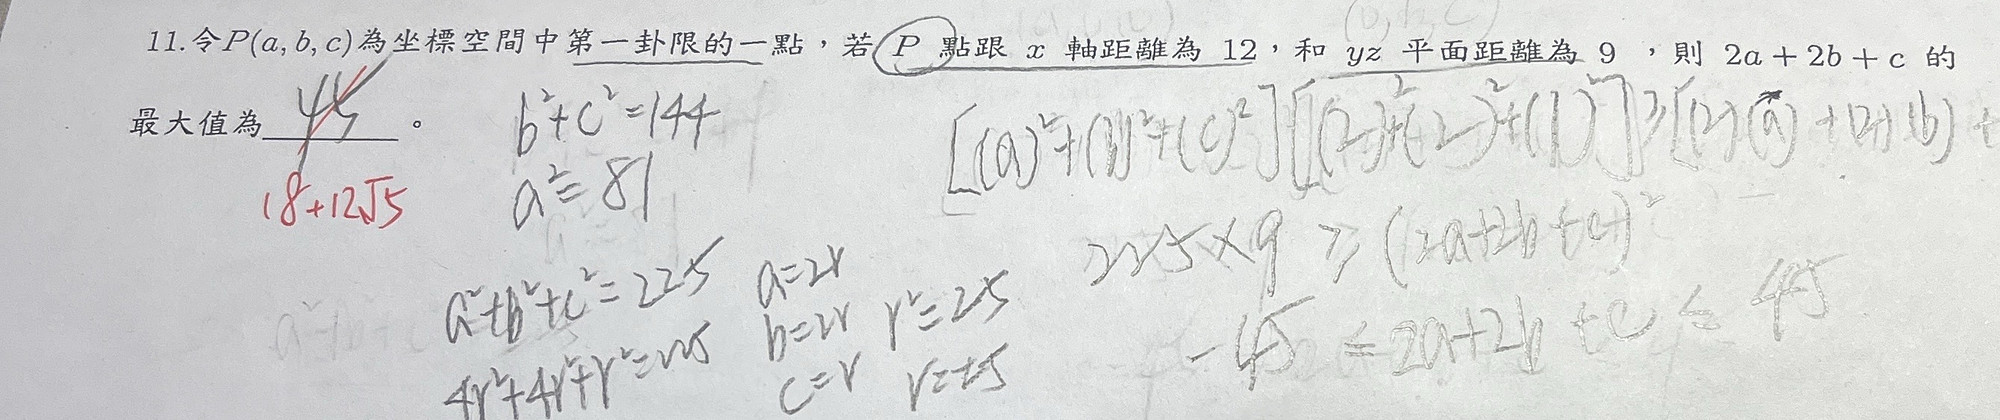 11.令P(a, b, c)為坐標空間中第一卦限的一點，若 P 點跟 x 軸距離為 12，和 yz 平面距離為 9 ，則 2a + 2b + c 的
最大值為 45 。
18+12√5
b²+c²=144
a²=81
a²+b²+c²=225
4r²+4r²+r²=225
a=2r
b=2r
c=r
r²=25
r=±5
[(a)²+(b)²+(c)²][(2)²+(2)²+(1)²]≥[(2)(a)+(2)(b)+
225×9 ≥ (2a+2b+c)²
-45 ≤ 2a+2b+c ≤ 45